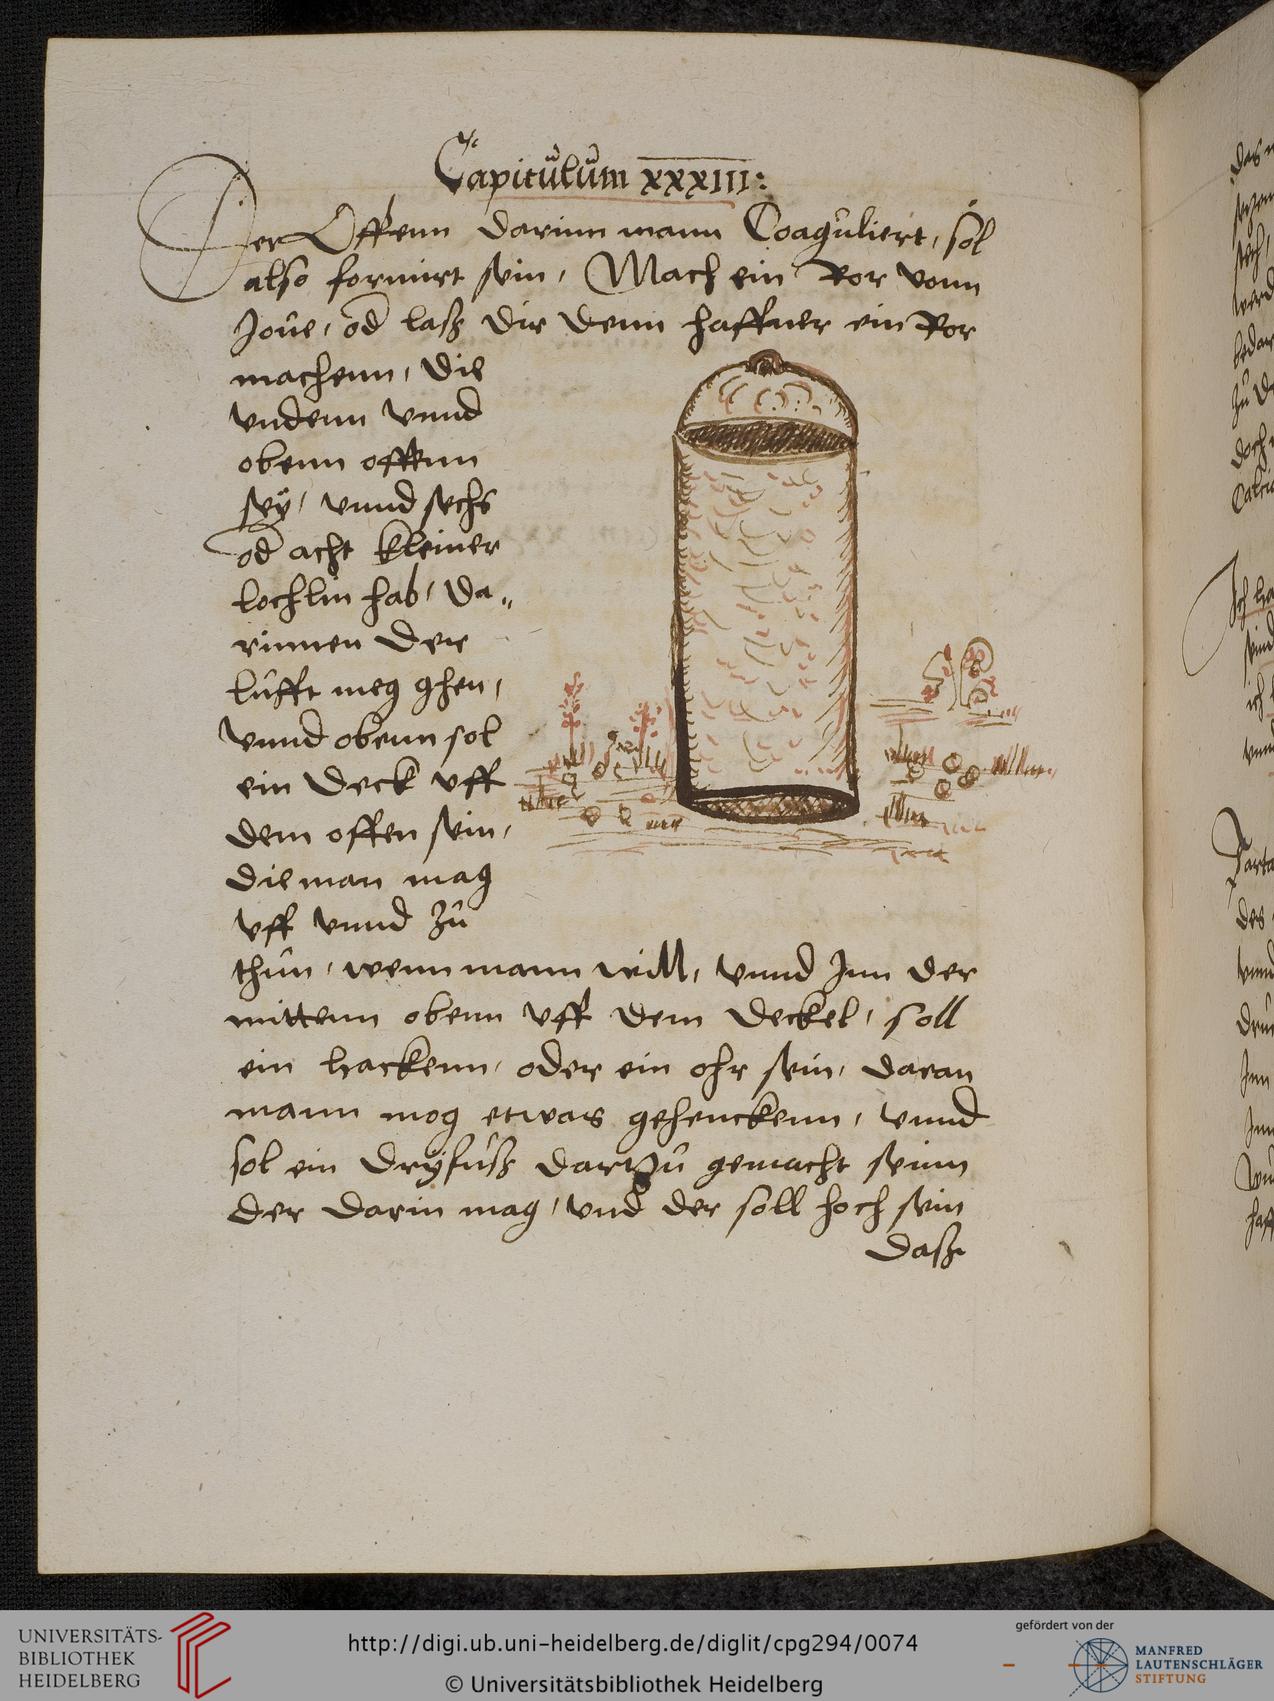 Capitulum xxxiii:
Der Offenn darinn mann Coaguliert, sol
also formirt sein, Mach ein Ror vonn
Joue, od lasz dir denn haffner ein Ror
machenn, die
vndenn vnnd
obenn offenn
seÿ, vnnd sechs
od acht kleiner
lochlin hab, da„
rinnen der
lufft meg ghen,
vnnd obenn sol
ein deck vff
dem offen sein,
die man mag
vff vnnd zu
thun, wenn mann will, vnnd Jnn der
mittenn obenn vff dem deckel, soll
ein hackenn, oder ein ohr sein, daran
mann mog etwas gehenckenn, vnnd
sol ein dryfusz dartzu gemacht seinn
der darin mag, vnd der soll hoch sein
dasz
UNIVERSITÄTS-
BIBLIOTHEK
HEIDELBERG
http://digi.ub.uni-heidelberg.de/diglit/cpg294/0074
© Universitätsbibliothek Heidelberg
gefördert von der
MANFRED
LAUTENSCHLÄGER
STIFTUNG